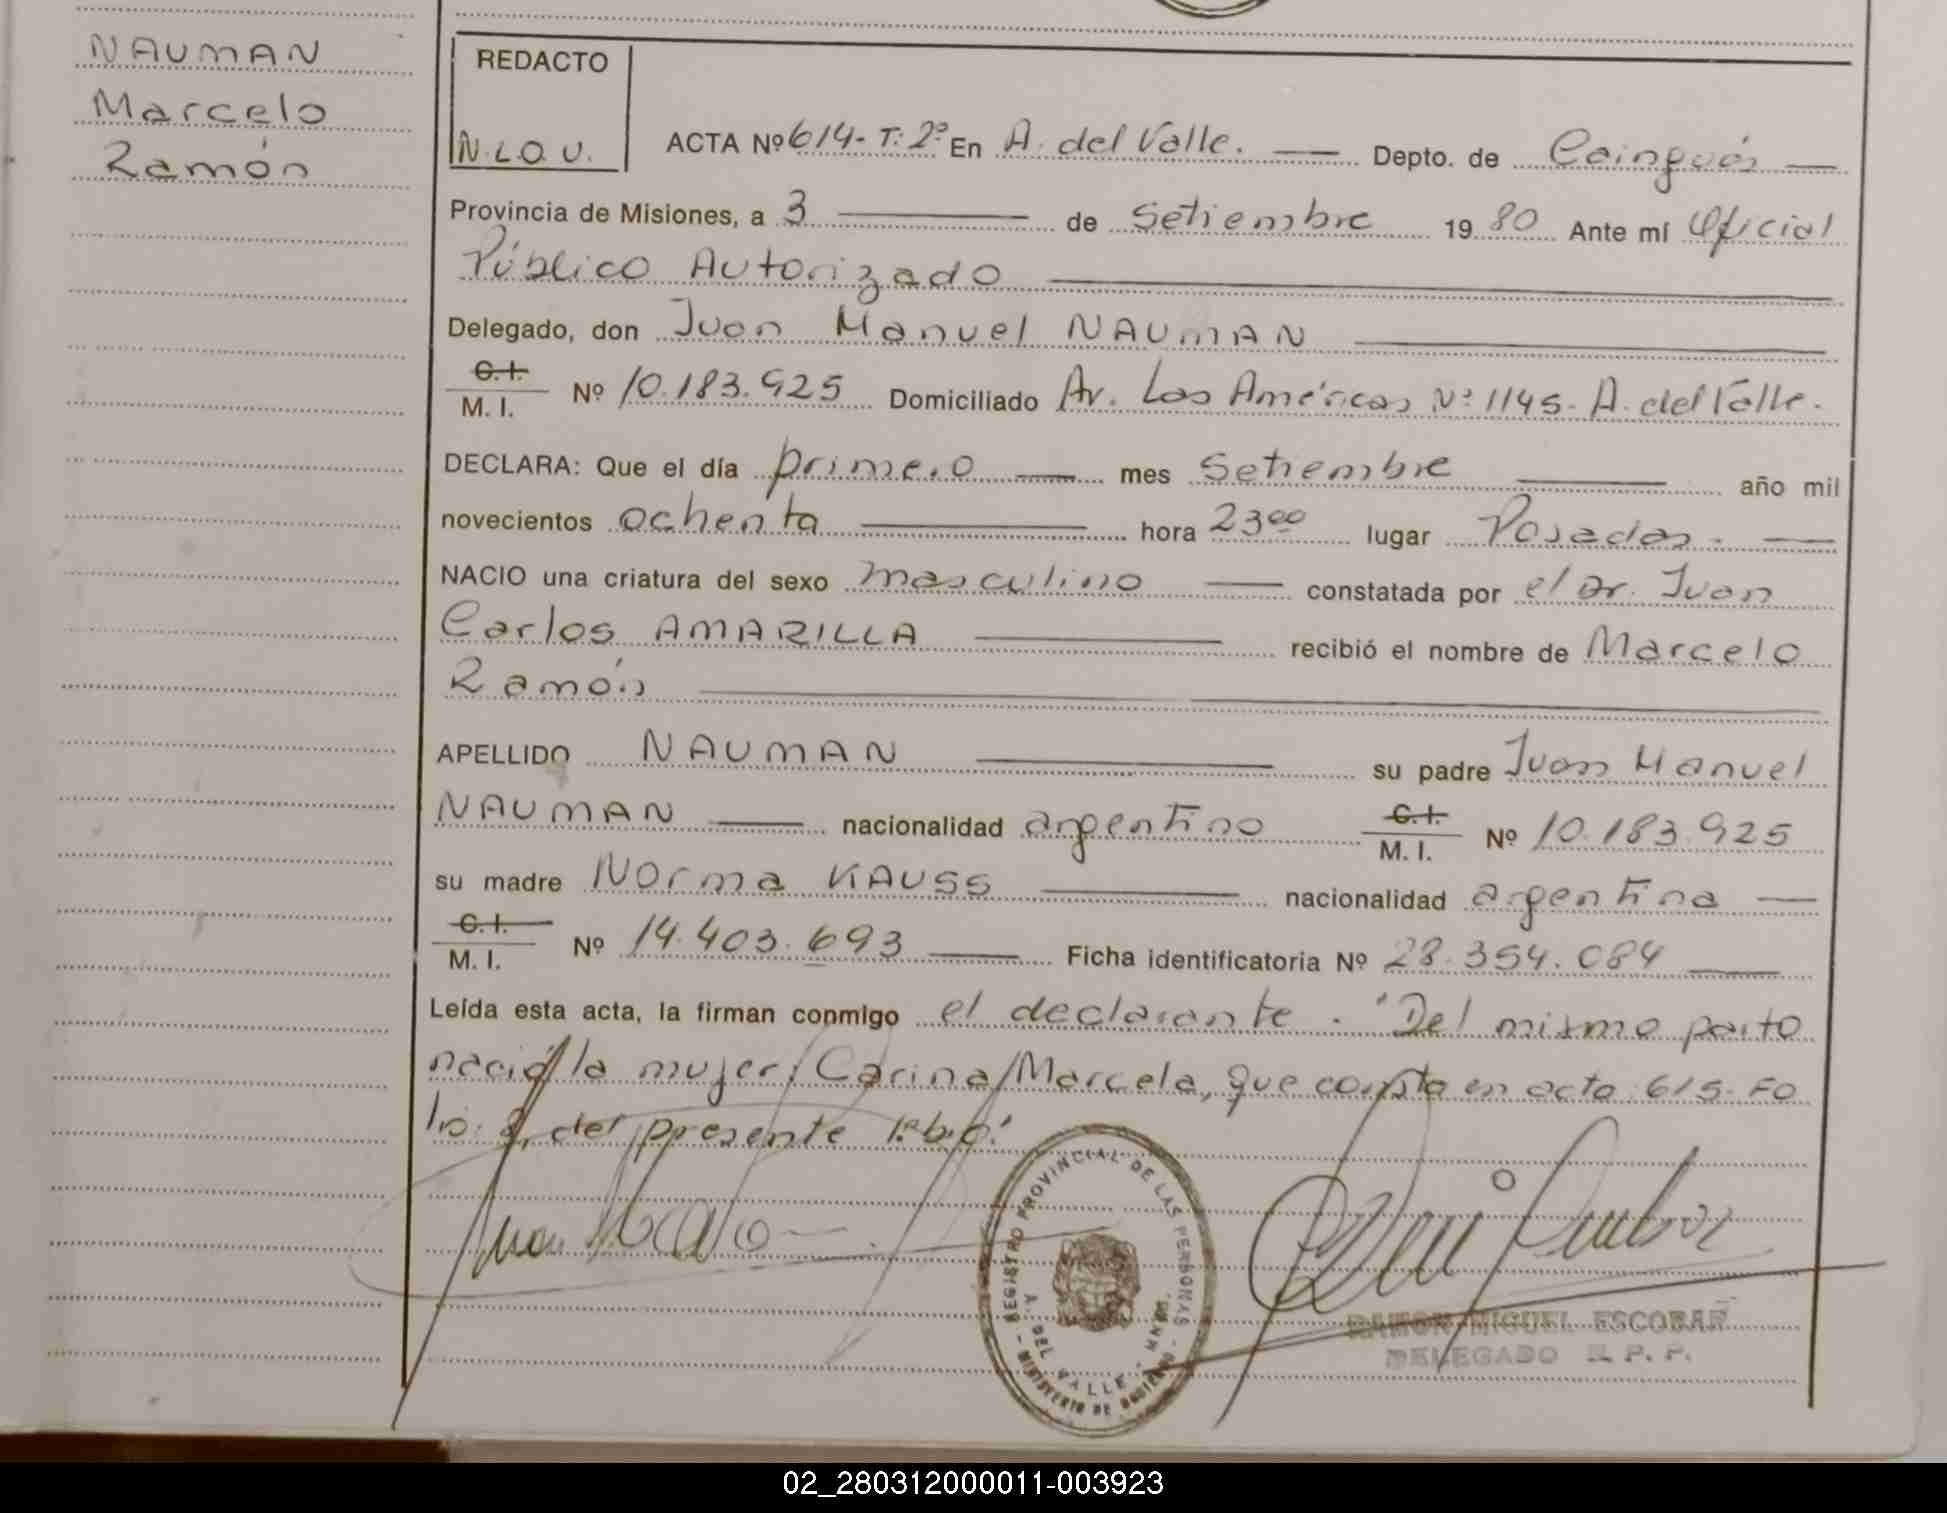 NAUMAN
Marcelo
Ramón
REDACTO
N.L.O.U.
ACTA Nº 614- T: 2º En A. del Valle. Depto. de Cainguás
Provincia de Misiones, a 3 de Setiembre 19 80 Ante mí Oficial
Público Autorizado
Delegado, don Juan Manuel NAUMAN
C.I. M. I. Nº 10.183.925 Domiciliado Av. Las Américas Nº 1145- A. del Valle.
DECLARA: Que el día primero mes Setiembre año mil
novecientos ochenta hora 23 00 lugar Posadas.
NACIO una criatura del sexo masculino constatada por el Dr. Juan
Carlos AMARILLA recibió el nombre de Marcelo
Ramón
APELLIDO NAUMAN su padre Juan Manuel
NAUMAN nacionalidad argentino C.I. M. I. Nº 10.183.925
su madre Norma KAUSS nacionalidad argentina
C.I. M. I. Nº 14.403.693 Ficha identificatoria Nº 28.354.084
Leída esta acta, la firman conmigo el declarante. "Del mismo parto
nació la mujer: Carina Marcela, que consta en acta: 615- FO
lio: del presente libro"
REGISTRO PROVINCIAL DE LAS PERSONAS
A. DEL VALLE - MNES.
MINISTERIO DE GOBIERNO
RAMON MIGUEL ESCOBAR
DELEGADO R. P. P.
02_280312000011-003923